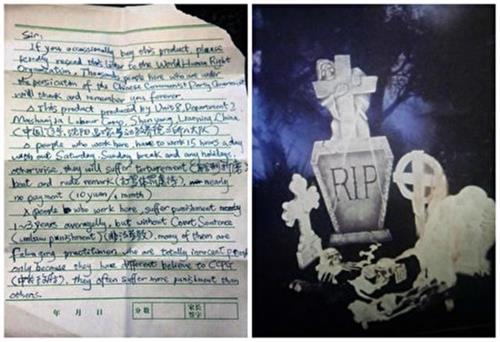 Sir:
If you occassionally buy this product, please
kindly resend this letter to the World Human Right
Organization. Thousands people here who are under
the persicution of the Chinese Communist Party Government
will thank and remember you forever.
This product produced by Unit 8, Department 2,
Mashanjia Labour Camp, Shenyang, Liaoning, China
(中国
people who work here, have to work 15 hours a day
with out Saturday, Sunday break and any holidays,
otherwise, they will suffer torturement
beat and rude remark nearly
no payment (10 yuan/month)
people who work here, suffer punishment nearly
1~3 years averagelly, but without Court Sentence
(unlaw punishment) (非法劳教), many of them are
Falun gong practitioner, who are totally innocent people
only because they have different believe to CCPG
they often suffer more punishment than
others.
年 月 日 分数 家长
签字
RIP